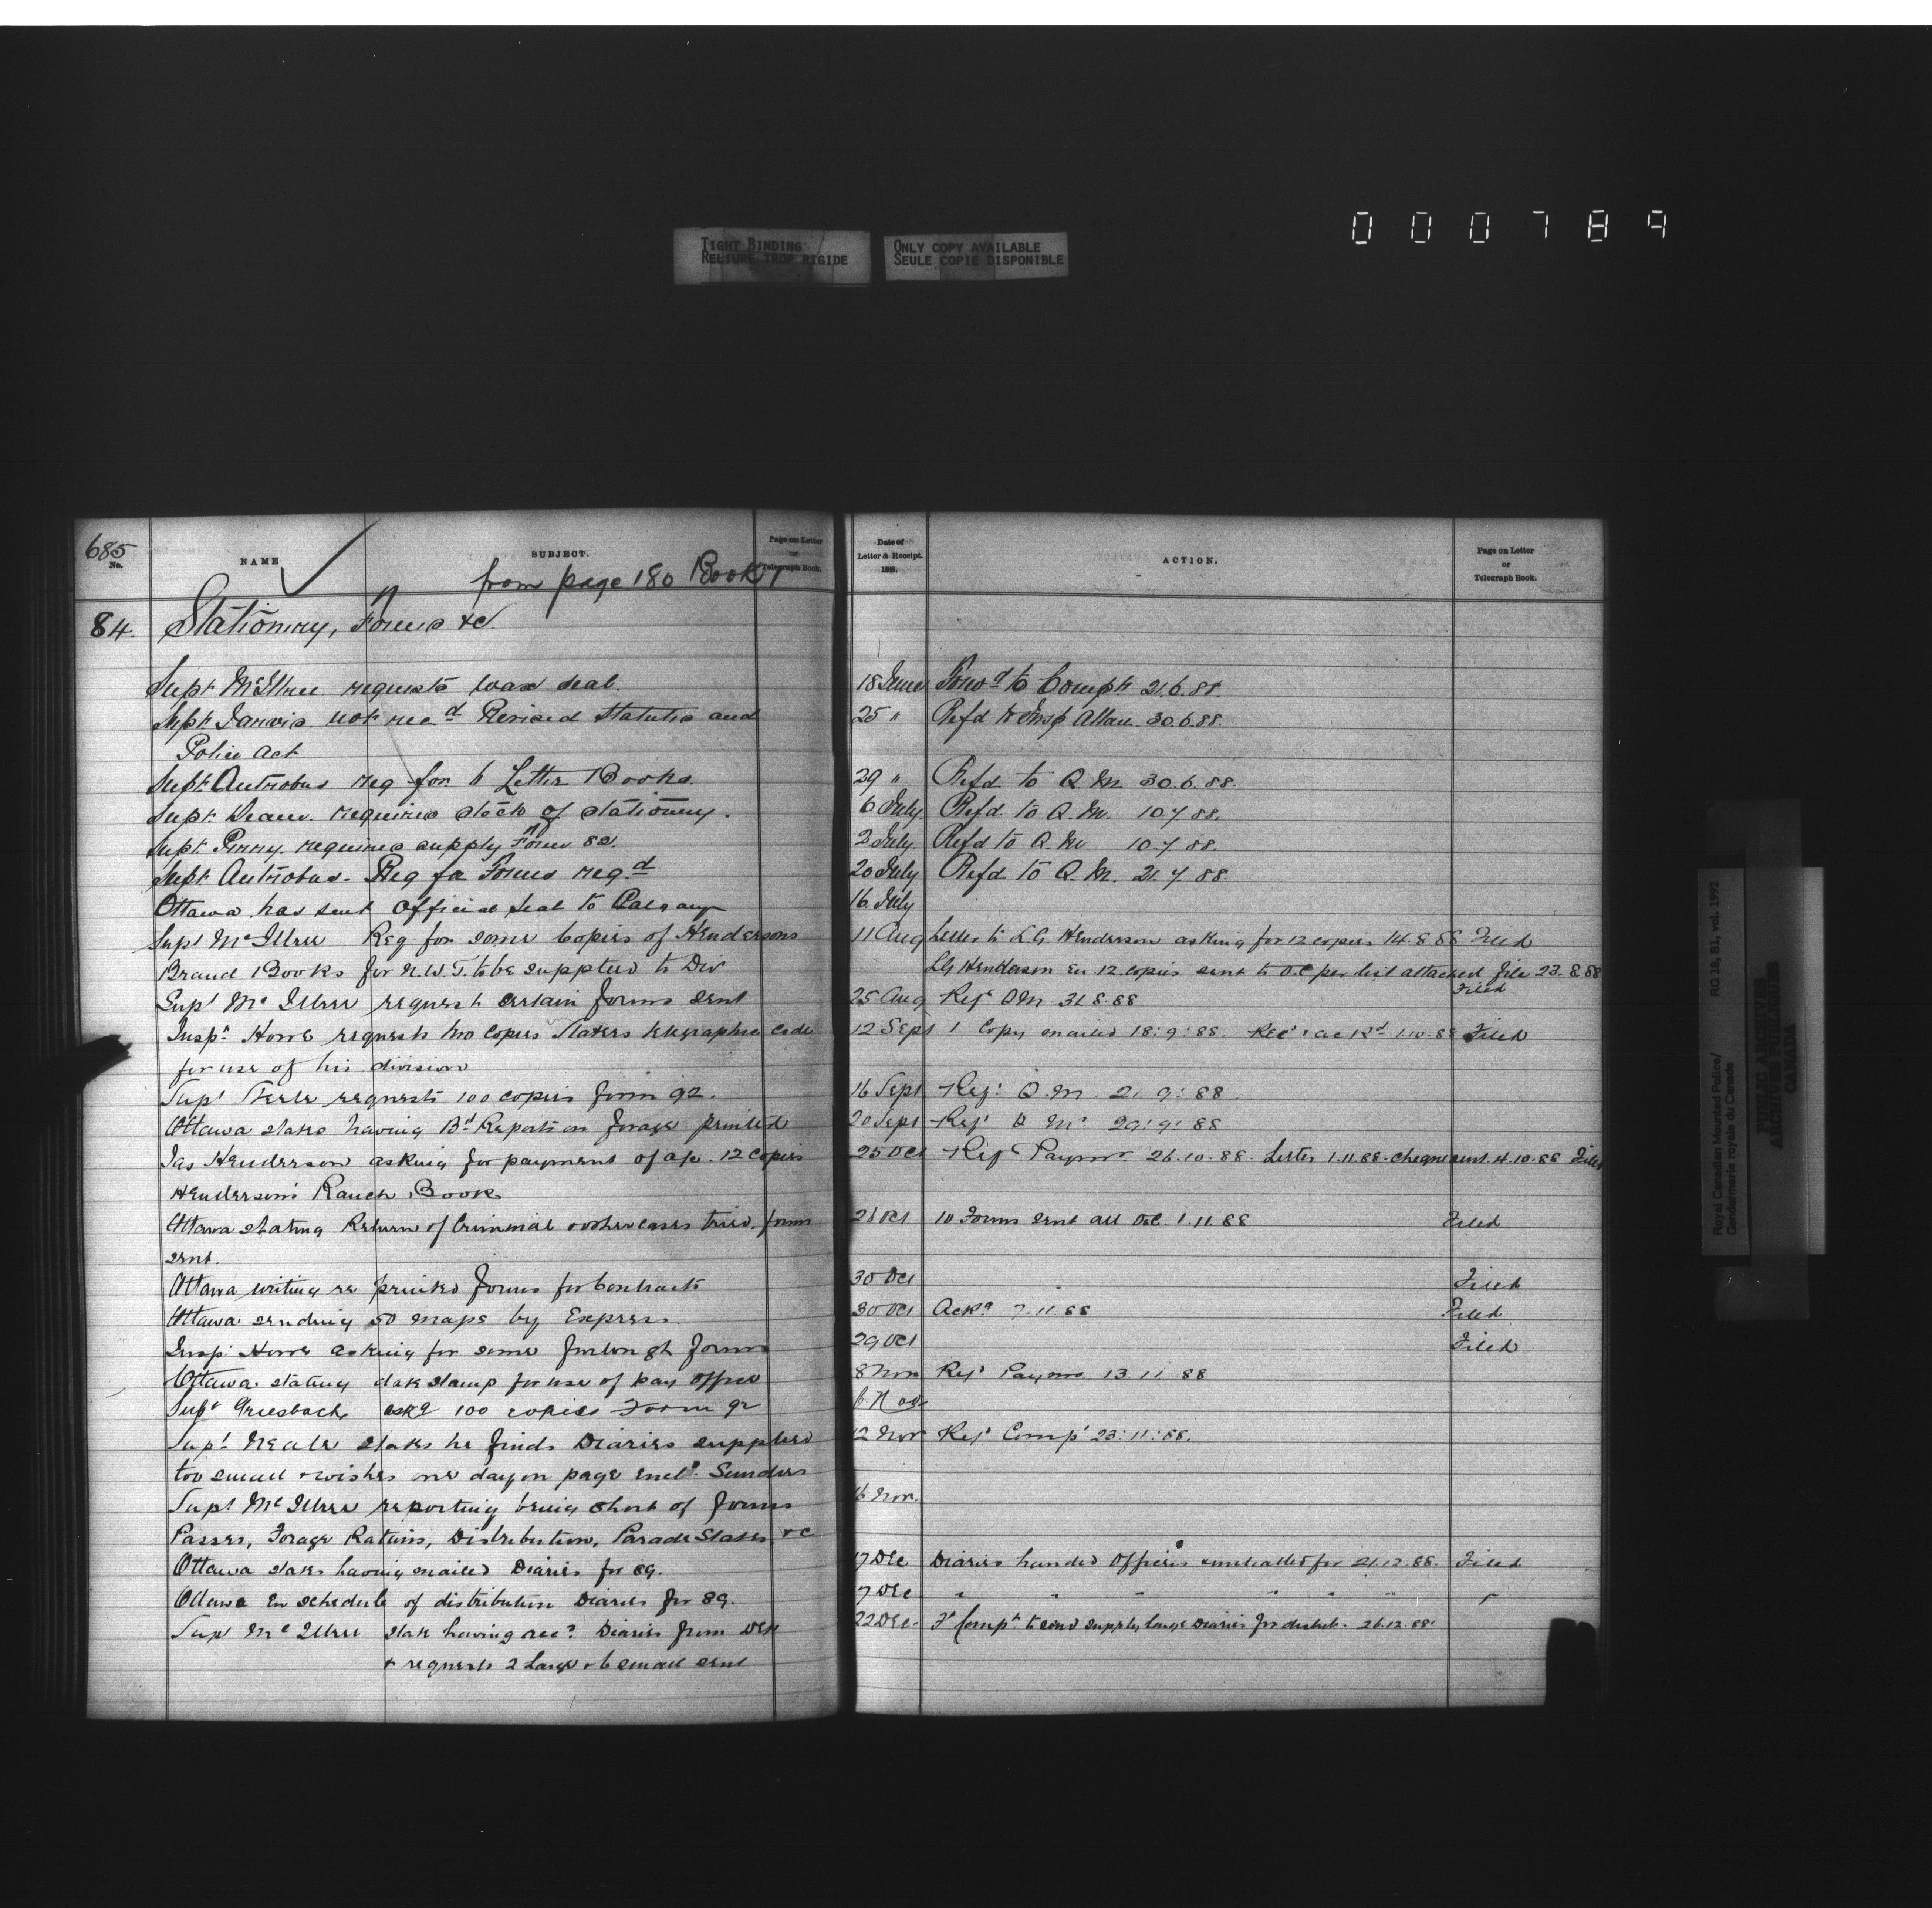 000789
TIGHT BINDING
RELIURE TROP RIGIDE
ONLY COPY AVAILABLE
SEULE COPIE DISPONIBLE
685
No.
NAME
SUBJECT.
Page on Letter
or
Telegraph Book.
from page 180 Book 1
84. Stationery, Forms &c
Supt McIllree requests wax seal.
Supt Jarvis not recd Revised Statutes and
Police Act
Supt Antrobus req for 6 Letter Books.
Supt Deane requires stock of stationery.
Supt Perry requires supply Form 82.
Supt Antrobus. Req for Forms reqd
Ottawa has sent Official Seal to Calgary
Supt McIllree Req for some Copies of Hendersons
Brand Books for N.W.T. to be supplied to Div
Supt McIllree request certain forms sent
Inspr Howe requests two copies Slaters telegraphic code
for use of his division
Supt Steele requests 100 copies form 92.
Ottawa states having Bd Reports on forage printed
Jas Henderson asking for payment of a/c. 12 copies
Henderson's Ranch Book
Ottawa stating Return of Criminal & other cases tried, forms
sent.
Ottawa writing re printed forms for Contracts
Ottawa sending 50 maps by Express.
Insp. Howe asking for some furlough forms
Ottawa stating date stamp for use of pay office
Supt Griesbach askg 100 copies Form 92
Supt Neale states he finds Diaries supplied
too small & wishes one day on page encl. Sundries
Supt McIllree reporting being short of forms
Passes, Forage Rations, Distribution, Parade States, &c
Ottawa states having mailed Diaries for 89.
Ottawa En schedule of distribution Diaries for 89.
Supt McIllree state having recd Diaries from Dep
& requests 2 Large & 6 small sent
Date of
Letter & Receipt.
188 .
ACTION.
Page on Letter
or
Telegraph Book.
18 June Forwd to Compt 21.6.88.
25 " Refd to Insp Allan 30.6.88.
29 " Refd to Q.M. 30.6.88.
6 July Refd to Q.M. 10.7.88.
2 July Refd to Q.M. 10.7.88.
20 July Refd to Q.M. 21.7.88.
16 July
11 Aug Letter to L.G. Henderson asking for 12 copies 14.8.88 Filed
LG Henderson En 12 copies sent to O.C per list attached file 23.8.88
Filed
25 Aug Refd QM 31.8.88
12 Sept 1 Copy mailed 18:9:88. Recd & ackd 1.10.88 Filed
16 Sept Refd Q.M. 21:9:88
20 Sept Refd Q M 29:9:88
25 Oct Refd Paymr 26.10.88. Letter 1.11.88. cheque sent 4.10.88 Filed
26 Oct 10 Forms sent all O.C. 1.11.88 Filed
30 Oct Filed
30 Oct Ackd 7.11.88 Filed
29 Oct Filed
8 Nov Refd Paymr 13.11.88
6. Nov
12 Nov Refd Comp 23:11:88.
16 Nov.
17 Dec Diaries handed Officers 21.12.88. Filed
7 Dec " " " " " "
22 Dec. Compt to send supply large Diaries for distrib. 26.12.88.
Royal Canadian Mounted Police/
Gendarmerie royale du Canada
RG 18, B1, vol. 1992
PUBLIC ARCHIVES
ARCHIVES PUBLIQUES
CANADA